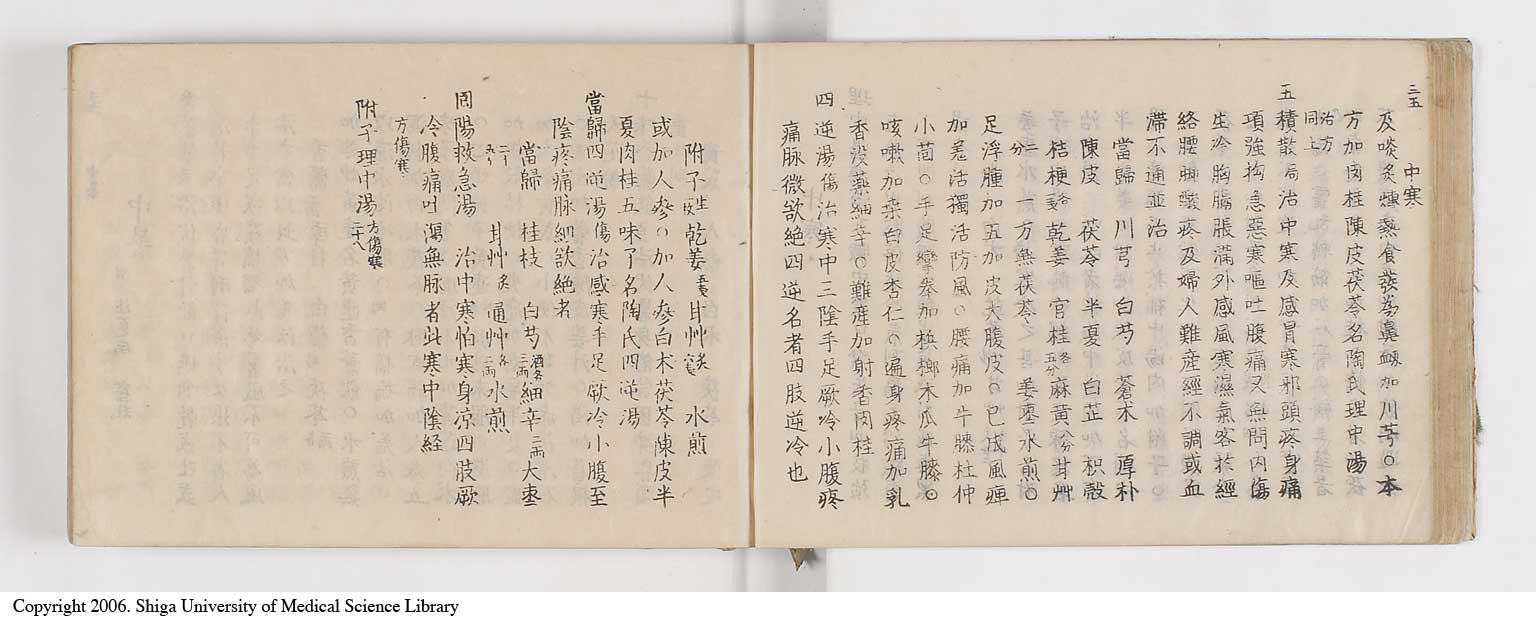 三五
中寒
及啖炙煿熱食發為鼻衂加川芎〇本
方加肉桂陳皮茯苓名陶氏理中湯
治方同上
五積散局治中寒及感冒寒邪頭疼身痛
項強拘急惡寒嘔吐腹痛又無問内傷
生冷胸膈脹滿外感風寒濕氣客於經
絡腰脚酸疼及婦人難産經不調或血
滯不通並治
當歸 川芎 白芍 蒼朮 厚朴
陳皮 茯苓 半夏 白芷 枳殻
桔梗 乾姜 官桂各五分麻黄 甘艸
二分 一方無茯苓 姜枣水煎〇
足浮腫加五加皮大腹皮〇已成風痺
加羗活獨活防風〇腰痛加牛膝杜仲
小茴〇手足攣拳加梹榔木瓜牛膝〇
咳嗽加桒白皮杏仁〇遍身疼痛加乳
香没藥細辛〇難産加射香肉桂
四逆湯傷治寒中三陰手足厥冷小腹疼
痛脉微欲絶四逆名者四肢逆冷也
附子 乾姜 甘艸 水煎
或加人參〇加人參白朮茯苓陳皮半
夏肉桂五味了名陶氏四逆湯
當歸四逆湯傷治感寒手足厥冷小腹至
陰疼痛脉細欲絶者
當歸 桂枝 白芍酒各三兩細辛二兩大枣
甘艸炙 通艸各二兩 水煎
囘陽救急湯 治中寒怕寒身凉四肢厥
冷腹痛吐瀉無脉者此寒中陰経
方傷寒
附子理中湯方傷寒二十八